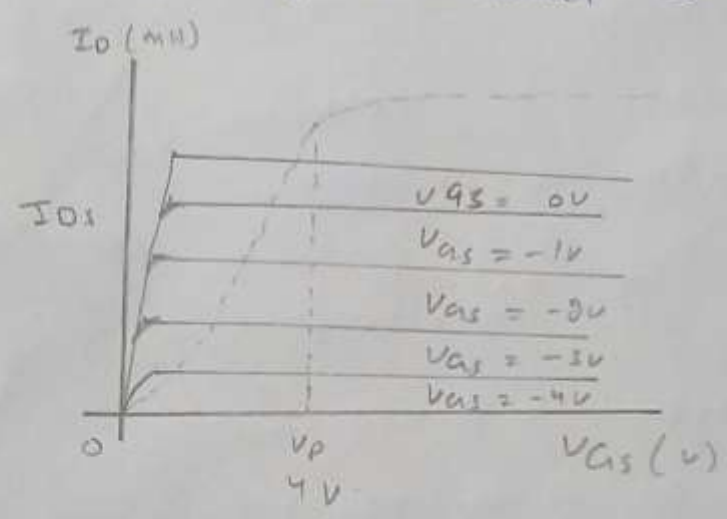 ID (mA)
IDs
VGS = 0V
VGS = -1V
VGS = -2V
VGS = -3V
VGS = -4V
0
Vp
4V
VGS (v)